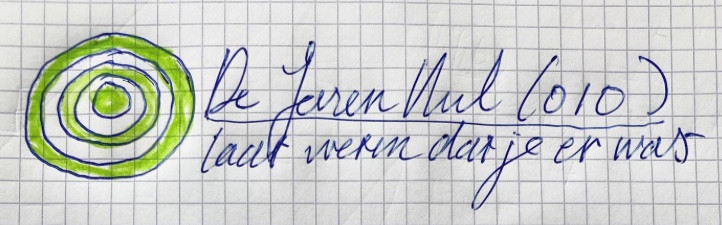 De Jaren Nul (010)
laat weten dat je er was